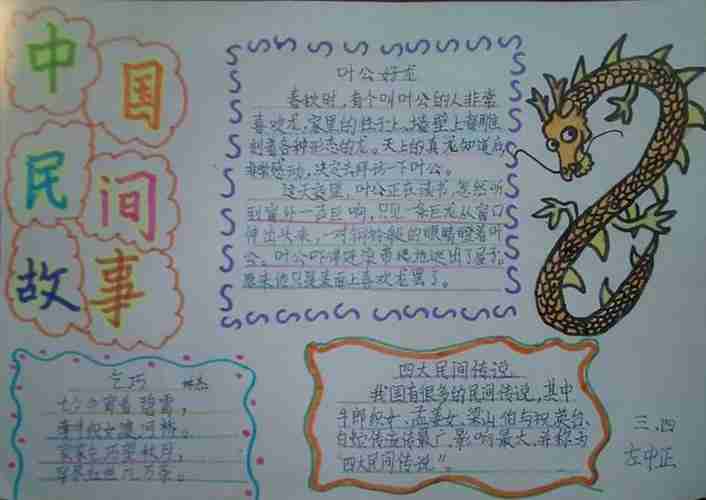 中国
民间
故事
叶公好龙
春秋时,有个叫叶公的人非常
喜欢龙,家里的柱子上、墙壁上都雕
刻着各种形态的龙。天上的真龙知道后,
非常感动,决定去拜访一下叶公。
这天夜里,叶公正在读书,忽然听
到窗外一声巨响,只见一条巨龙从窗口
伸出头来,一对铜铃般的眼睛瞪着叶
公。叶公吓得
原来他只是表面上喜欢龙罢了。
乞巧 林杰
七夕今宵看碧霄,
牵牛织女渡河桥。
家家乞巧望秋月,
穿尽红丝几万条。
四大民间传说
我国有很多的民间传说,其中
牛郎织女、孟姜女、梁山伯与祝英台、
白蛇传流传最广,影响最大,并称为
"四大民间传说"。
三、四
左中正